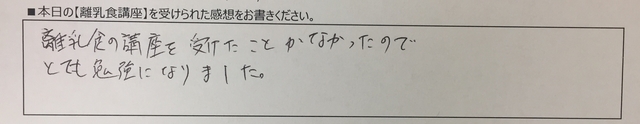 ■本日の【離乳食講座】を受けられた感想をお書きください。
離乳食の講座を受けたことがなかったので
とても勉強になりました。